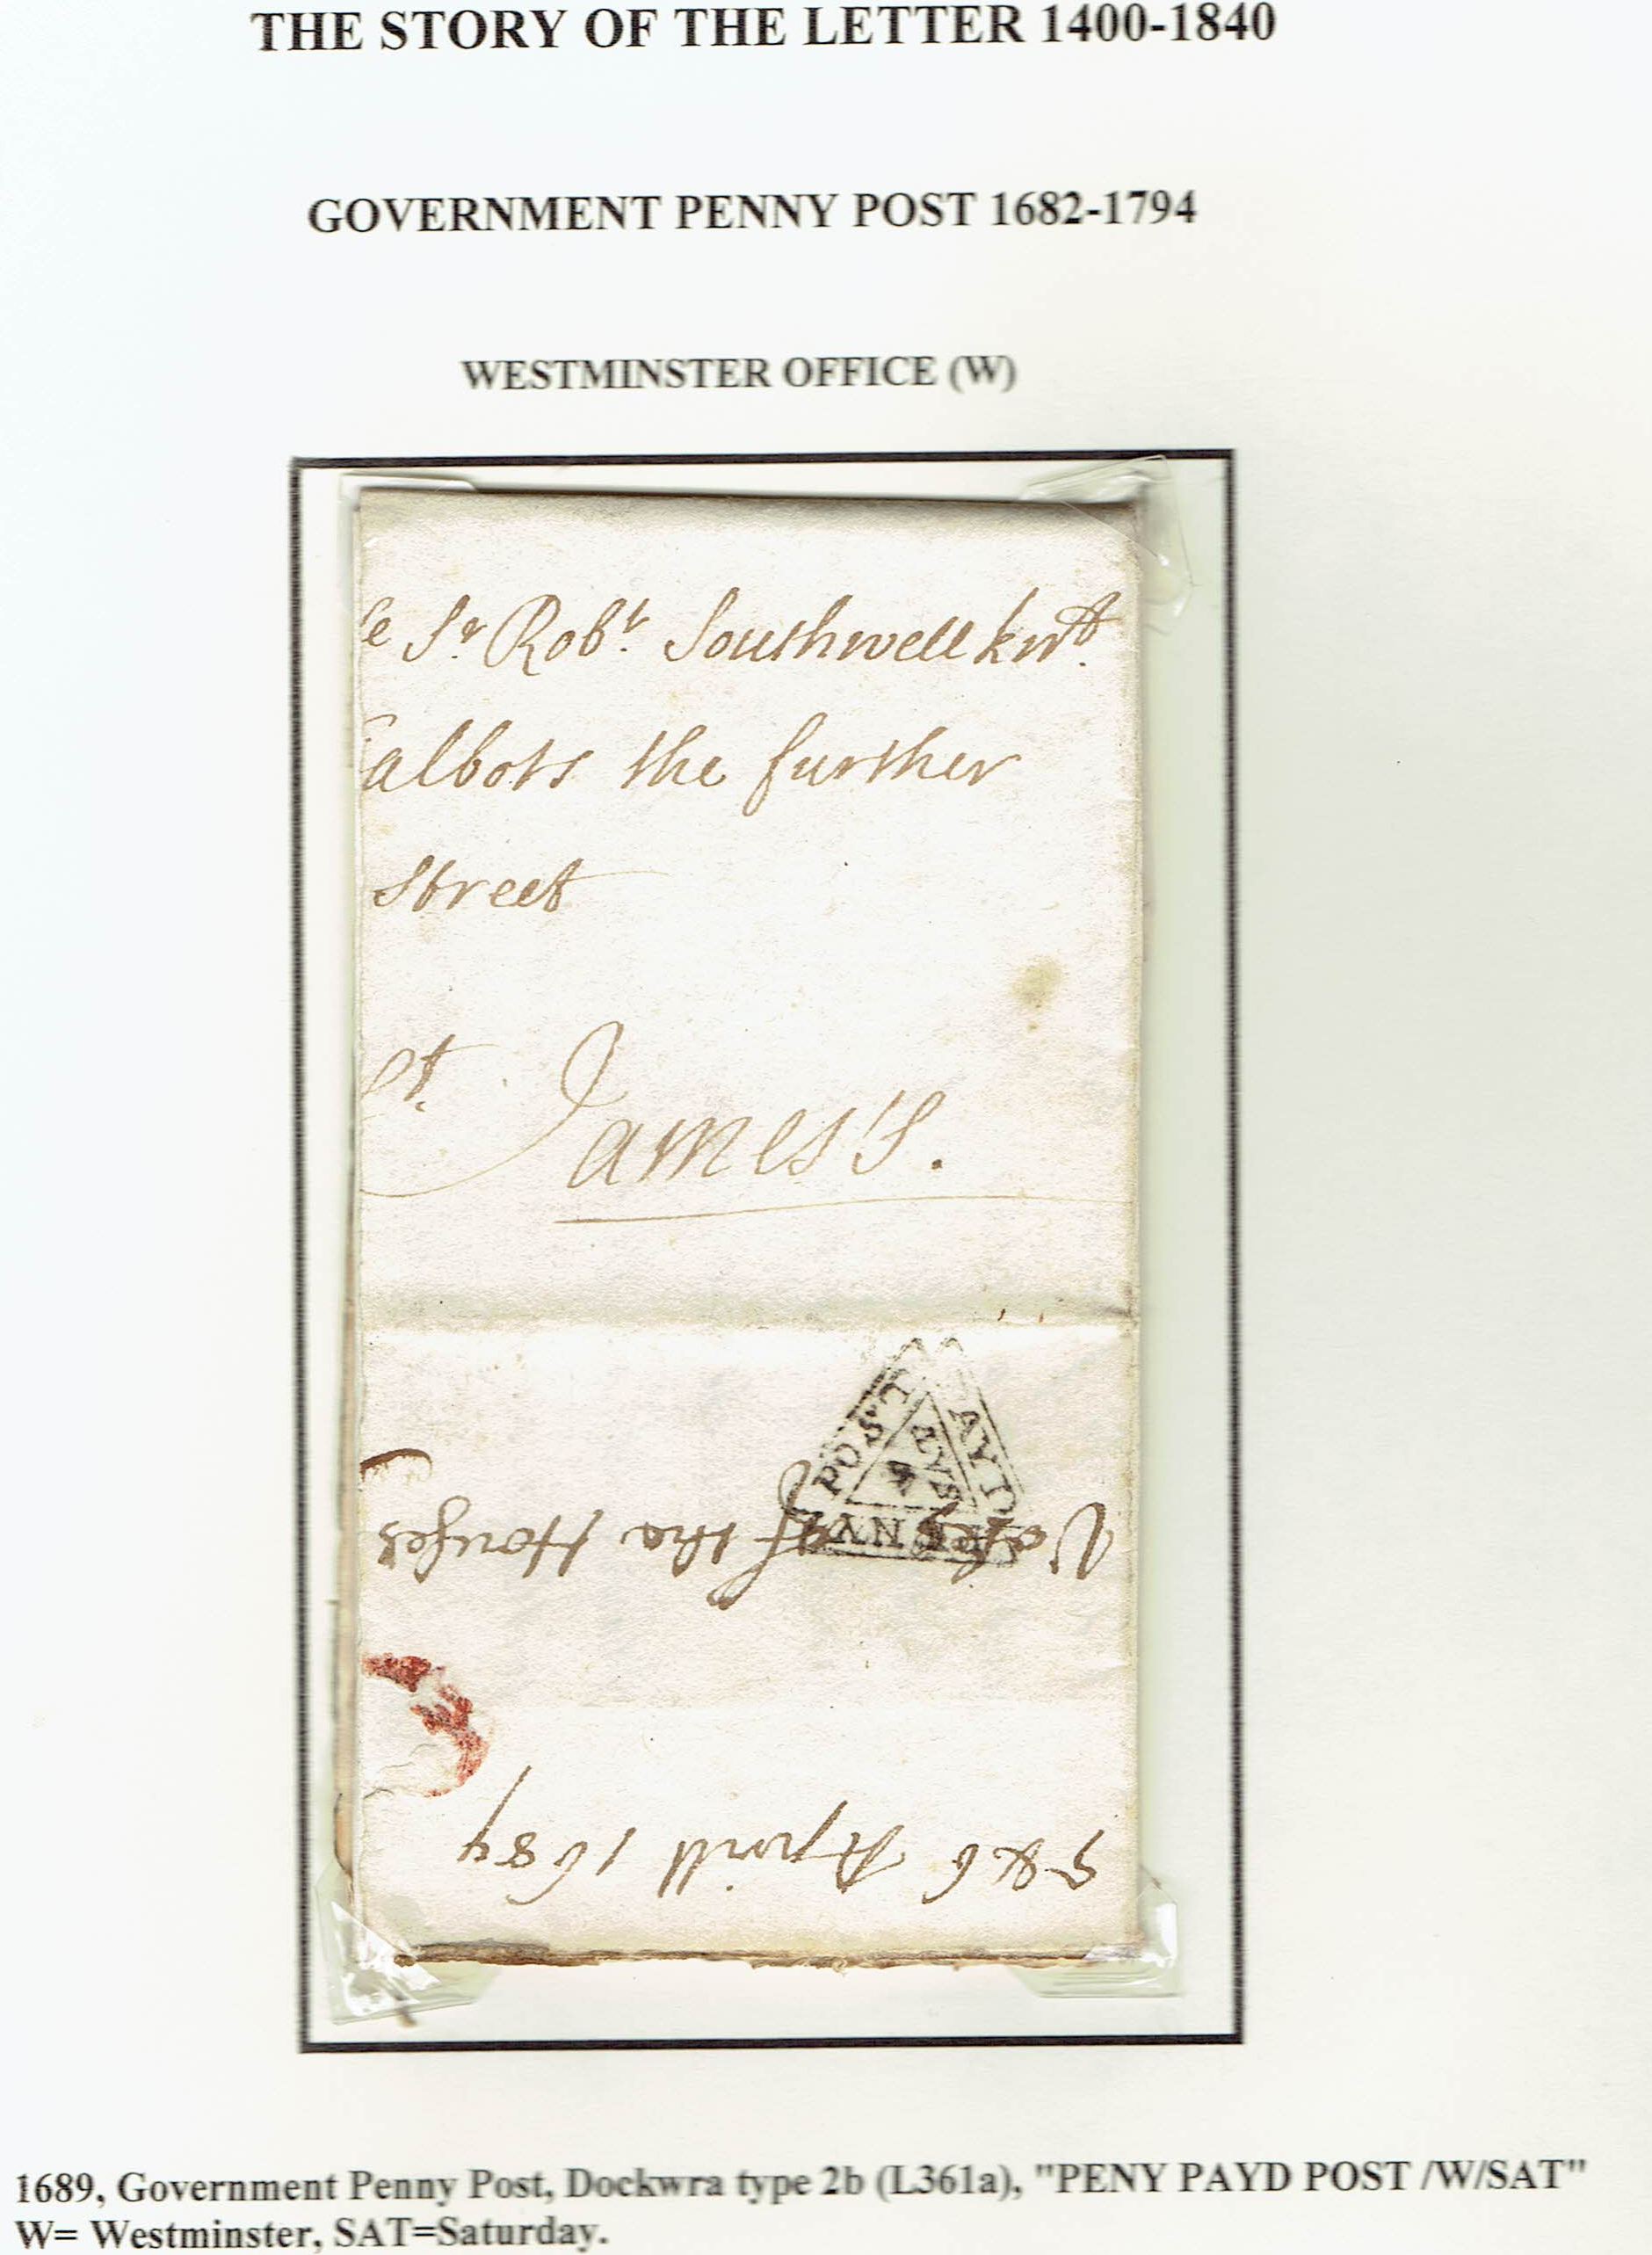 THE STORY OF THE LETTER 1400-1840
GOVERNMENT PENNY POST 1682-1794
WESTMINSTER OFFICE (W)
e Sr Robt Southwell knt.
albots the further
Street
St. James's.
POST
AYD
NY
SAT
W
Votes of the Houses
5 & 6 Aprill 1689
1689, Government Penny Post, Dockwra type 2b (L361a), "PENY PAYD POST /W/SAT"
W= Westminster, SAT=Saturday.